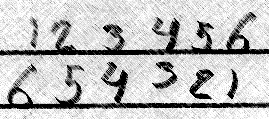 123456
654321